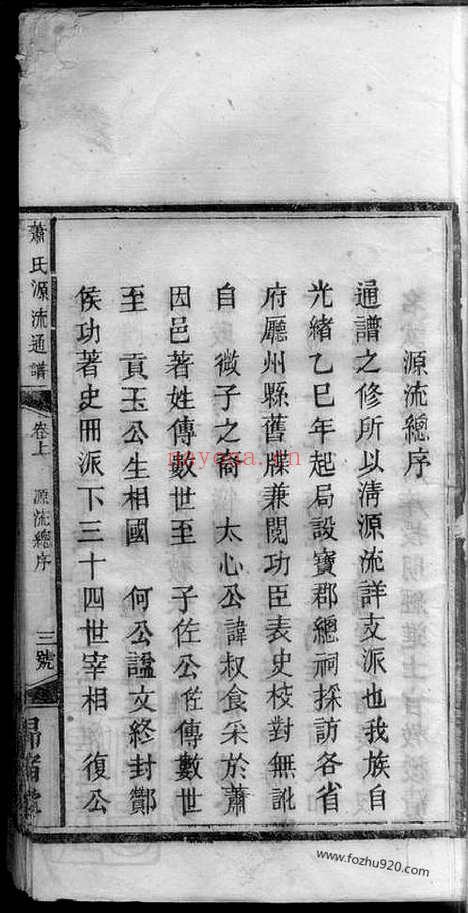 源流總序
通譜之修所以淸源流詳支派也我族自
光緒乙巳年起局設寶郡總祠採訪各省
府廳州縣舊牒兼閱功臣表史校對無訛
自 微子之裔 太心公諱叔食采於蕭
因邑著姓傳數世至 子佐公佐傳數世
至 貢玉公生相國 何公諡文終封酇
侯功著史冊派下三十四世宰相 復公
蕭氏源流通譜
卷上
源流總序
三號
nayona.cn
www.fozhu920.com